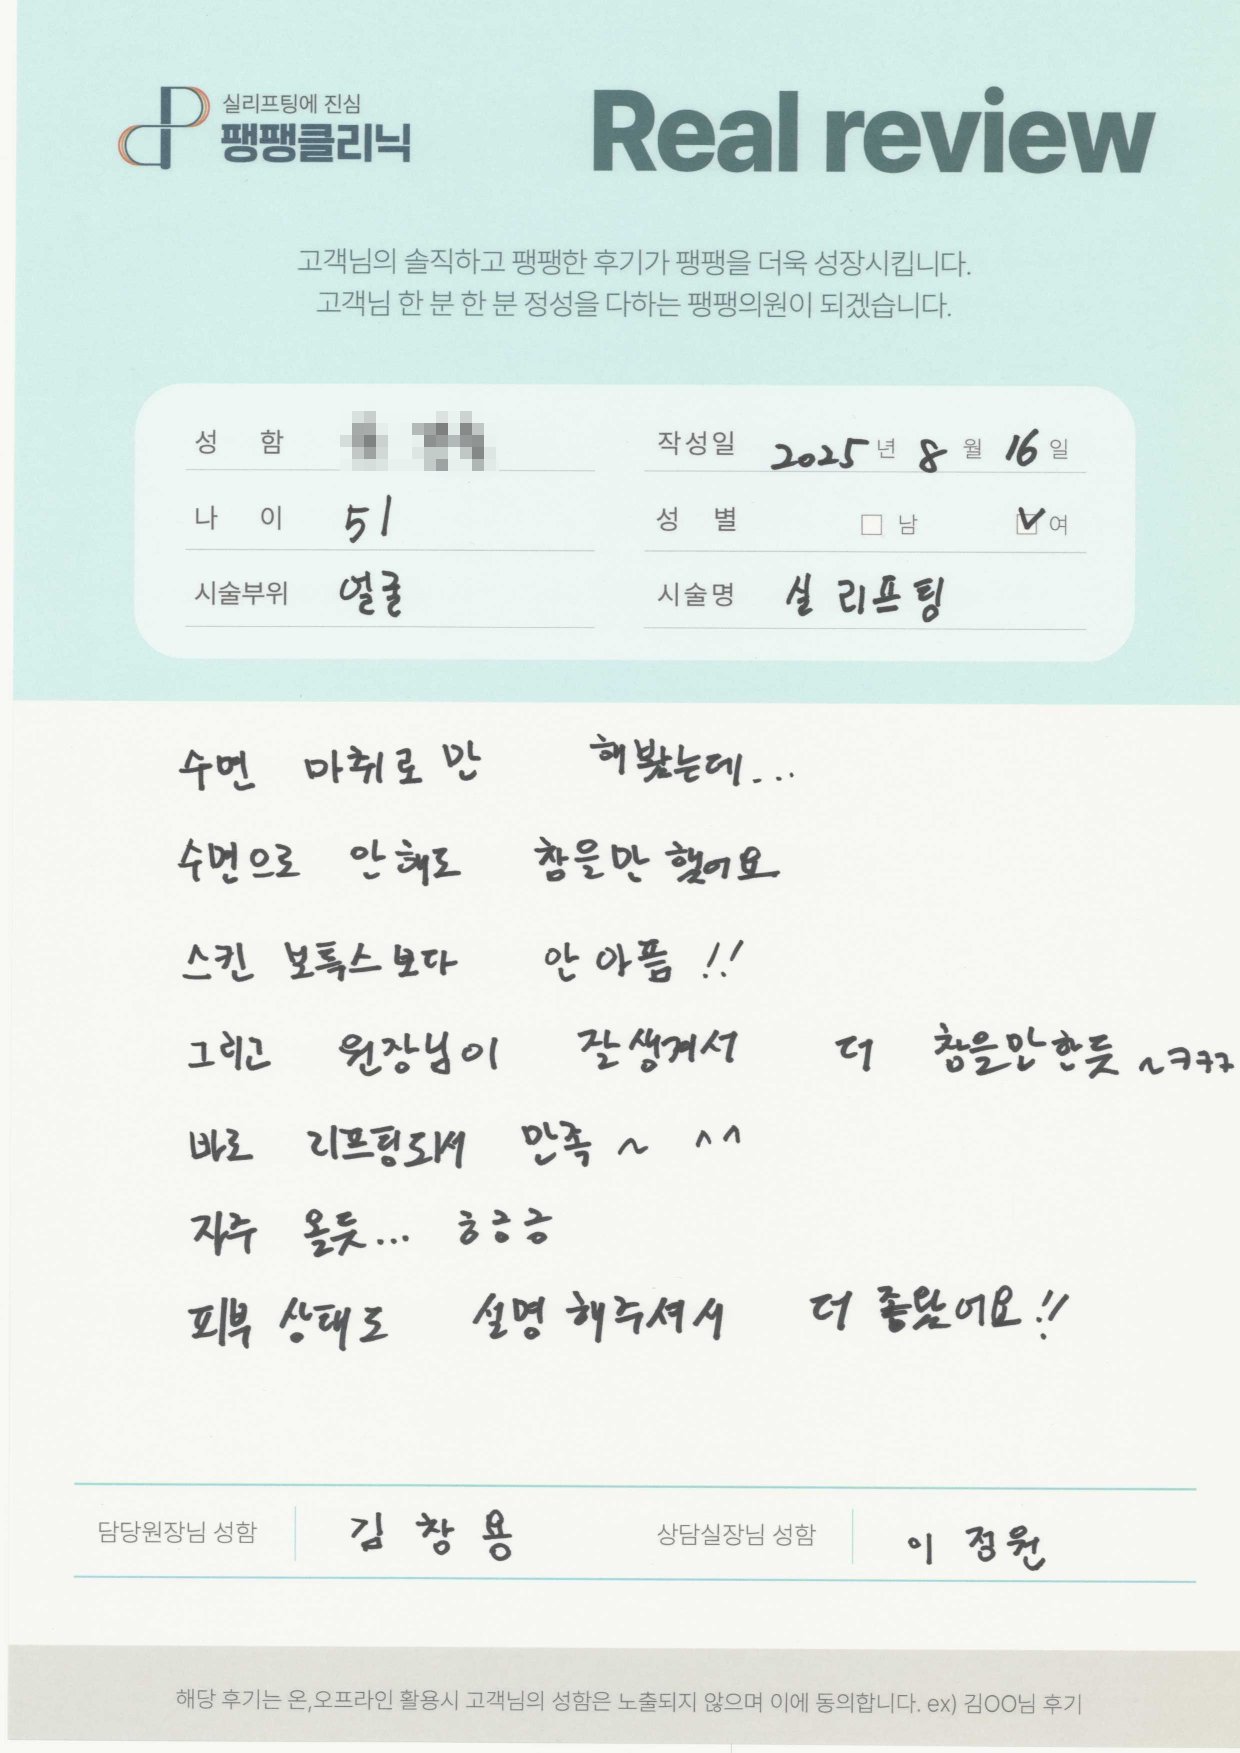 실리프팅에 진심
팽팽클리닉
Real review
고객님의 솔직하고 팽팽한 후기가 팽팽을 더욱 성장시킵니다.
고객님 한 분 한 분 정성을 다하는 팽팽의원이 되겠습니다.
성 함 작성일 2025년 8월 16일
나 이 51 성 별 남 여
시술부위 얼굴 시술명 실 리프팅
수면 마취로만 해봤는데...
수면으로 안해도 참을만 했어요
스킨 보톡스보다 안아픔 !!
그리고 원장님이 잘생겨서 더 참을만한듯 ~ㅋㅋㅋ
바로 리프팅되서 만족~ ^^
자주 올듯... ㅎㅎㅎ
피부 상태도 설명해주셔서 더 좋았어요!!
담당원장님 성함 김창용 상담실장님 성함 이정원
해당 후기는 온,오프라인 활용시 고객님의 성함은 노출되지 않으며 이에 동의합니다. ex) 김OO님 후기